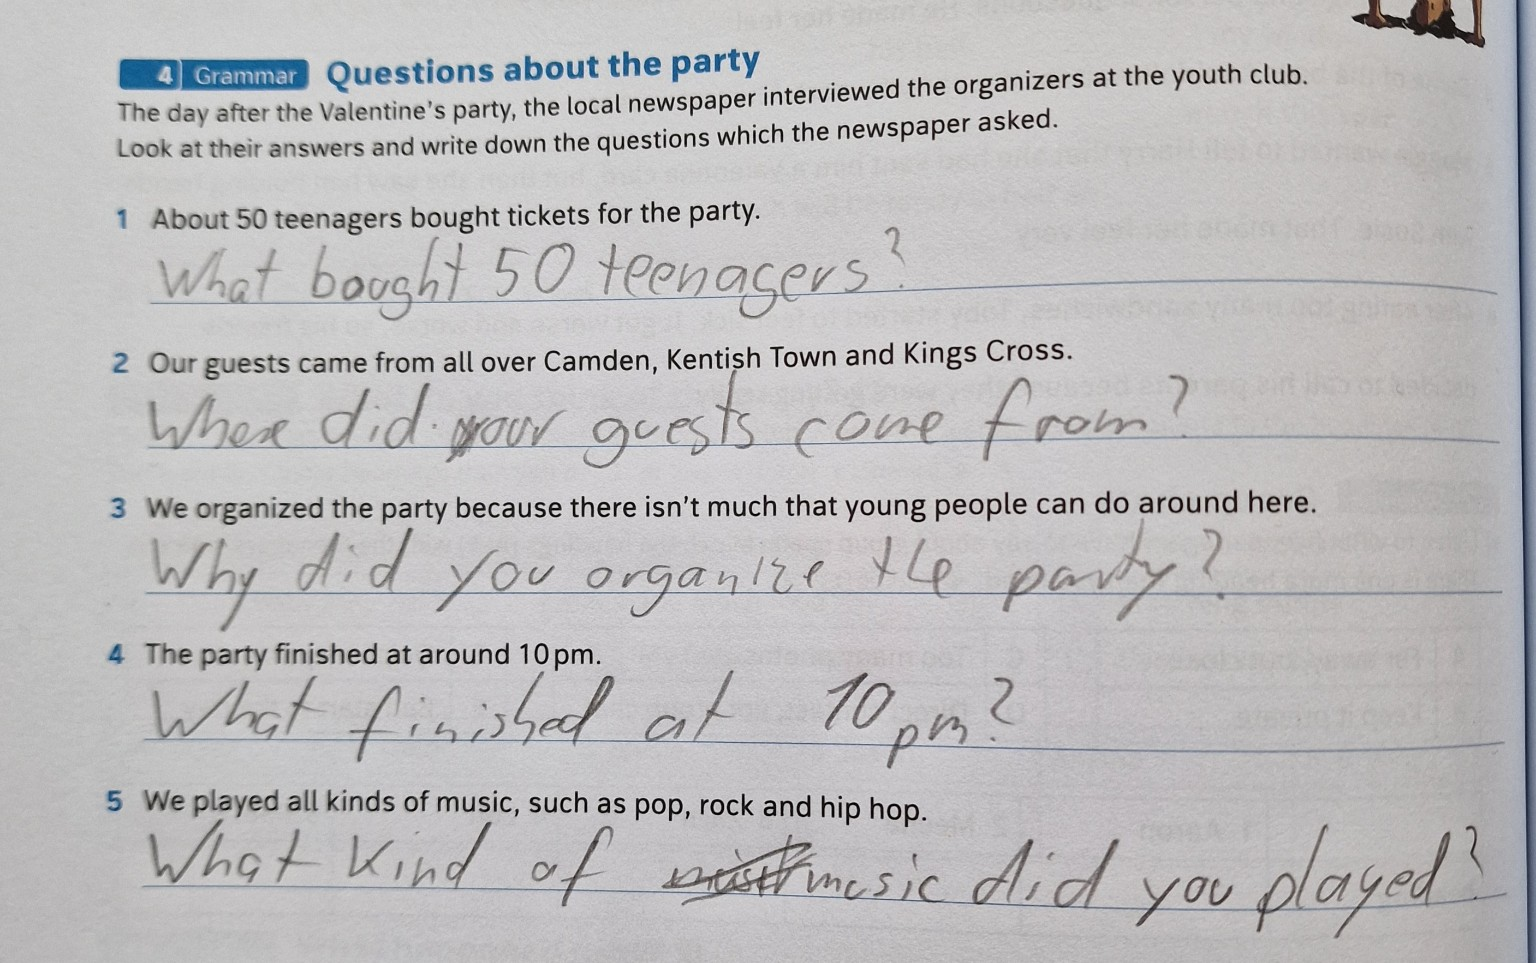 4 Grammar Questions about the party
The day after the Valentine's party, the local newspaper interviewed the organizers at the youth club.
Look at their answers and write down the questions which the newspaper asked.
1 About 50 teenagers bought tickets for the party.
What bought 50 teenagers?
2 Our guests came from all over Camden, Kentish Town and Kings Cross.
Where did your guests come from?
3 We organized the party because there isn't much that young people can do around here.
Why did you organize the party?
4 The party finished at around 10 pm.
What finished at 10 pm?
5 We played all kinds of music, such as pop, rock and hip hop.
What kind of music did you played?